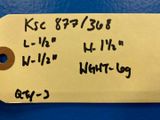 KSC 877/368
L-1/2" H-1 1/2"
W-1/2" WGHT-6g
QTY-3